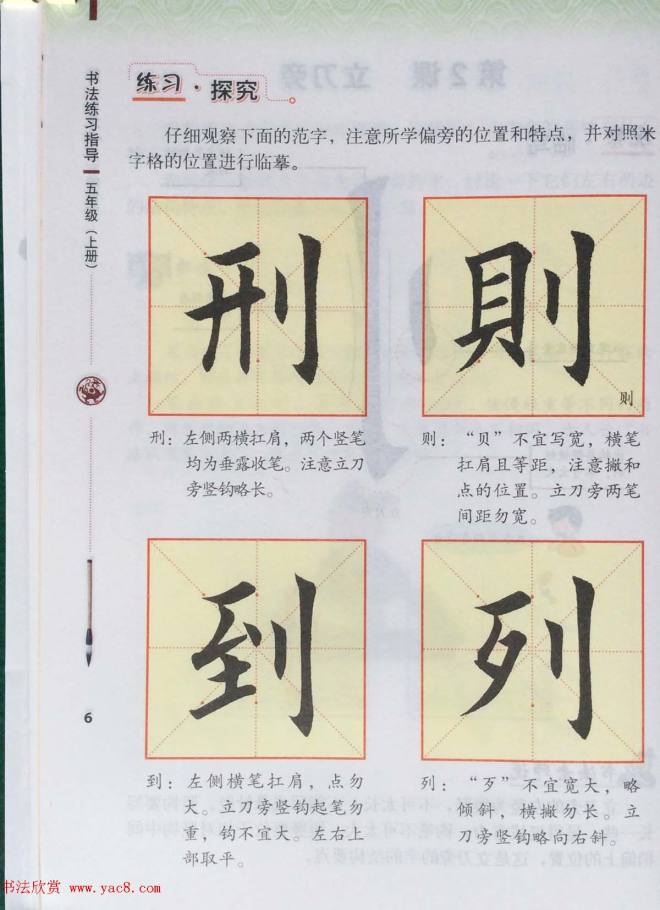 练习·探究
仔细观察下面的范字，注意所学偏旁的位置和特点，并对照米
字格的位置进行临摹。
刑
則
则
刑：左侧两横扛肩，两个竖笔
均为垂露收笔。注意立刀
旁竖钩略长。
则：“贝”不宜写宽，横笔
扛肩且等距，注意撇和
点的位置。立刀旁两笔
间距勿宽。
到
列
到：左侧横笔扛肩，点勿
大。立刀旁竖钩起笔勿
重，钩不宜大。左右上
部取平。
列：“歹”不宜宽大，略
倾斜，横撇勿长。立
刀旁竖钩略向右斜。
书法练习指导
五年级（上册）
6
书法欣赏 www.yac8.com